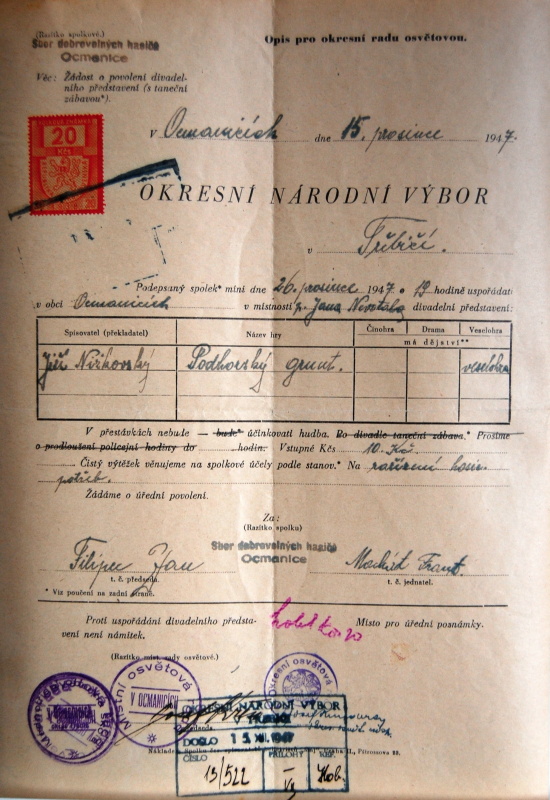 (Razítko spolkové.)
Sbor dobrovolných hasičů
Ocmanice
Opis pro okresní radu osvětovou.
Věc: Žádost o povolení divadel-
ního představení (s taneční
zábavou*).
20
Kčs
v Ocmanicích dne 15. prosince 1947.
OKRESNÍ NÁRODNÍ VÝBOR
v Třebíči.
Podepsaný spolek* míní dne 26. prosince 1947 o 19 hodině uspořádat
v obci Ocmanicích v místnosti p. Jana divadelní představení:
Spisovatel (překladatel) Název hry Činohra Drama Veselohra
má dějství**
Jiří Podhorský grunt. veselohra
V přestávkách nebude — bude* účinkovati hudba. Po divadle taneční zábava.* Prosíme
o prodloužení policejní hodiny do hodin. Vstupné Kčs 10.Kč.
Čistý výtěžek věnujeme na spolkové účely podle stanov.* Na zařízení hasič.
potřeb.
Žádáme o úřední povolení.
Za:
(Razítko spolku)
Sbor dobrovolných hasičů
Ocmanice
Filipec Jan
t. č. předseda. t. č. jednatel.
* Viz poučení na zadní straně.
Proti uspořádání divadelního předsta-
vení není námitek.
Místo pro úřední posnámky.
(Razítko míst. rady osvětové.)
Místní osvětová
V OCMANICÍCH
Okresní osvětová
OKRESNÍ NÁRODNÍ VÝBOR
DOŠLO 15 XII. 1947
ČÍSLO PŘÍLOHY
13/522